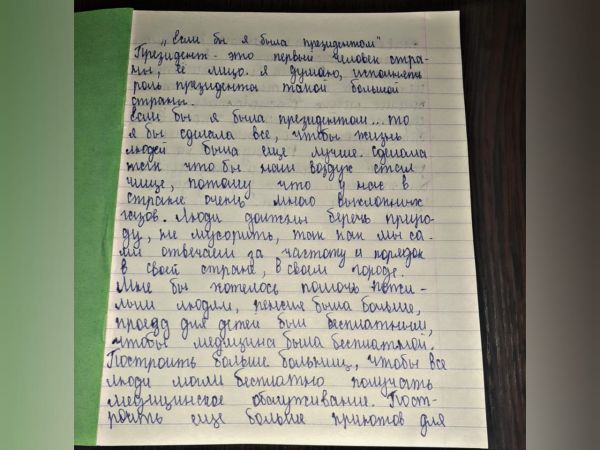 „если бы я была президентом"
Президент - это первый человек стра-
ны, её лицо. я думаю, исполнять
роль президента такой большой
страны.
если бы я была президентом... то
я бы сделала все, чтобы жизнь
людей была еще лучше. сделала
так что бы наш воздух стал
чище, потому что у нас в
стране очень много выхлопных
газов. Люди должны беречь приро-
ду, не мусорить, так как мы са-
ми отвечаем за частоту и порядок
в своей стране, в своем городе.
Мне бы хотелось помочь пожи-
лым людям, пенсия была больше,
проезд для детей был бесплатным,
чтобы медицина была бесплатной.
Построить больше больниц, чтобы все
люди могли бесплатно получать
медицинское обслуживание. Пост-
роить еще больше приютов для